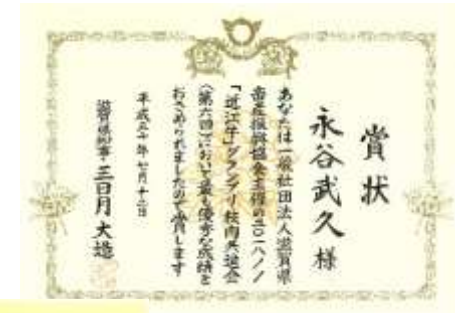 賞状
永谷武久 様
あなたは一般社団法人滋賀県
畜産振興協会主催の二〇一八ノノ
「近江牛」グランプリ枝肉共進会
(第六回)において最も優秀な成績を
おさめられましたので賞します
平成三十年 月十二日
滋賀県知事 三日月大造